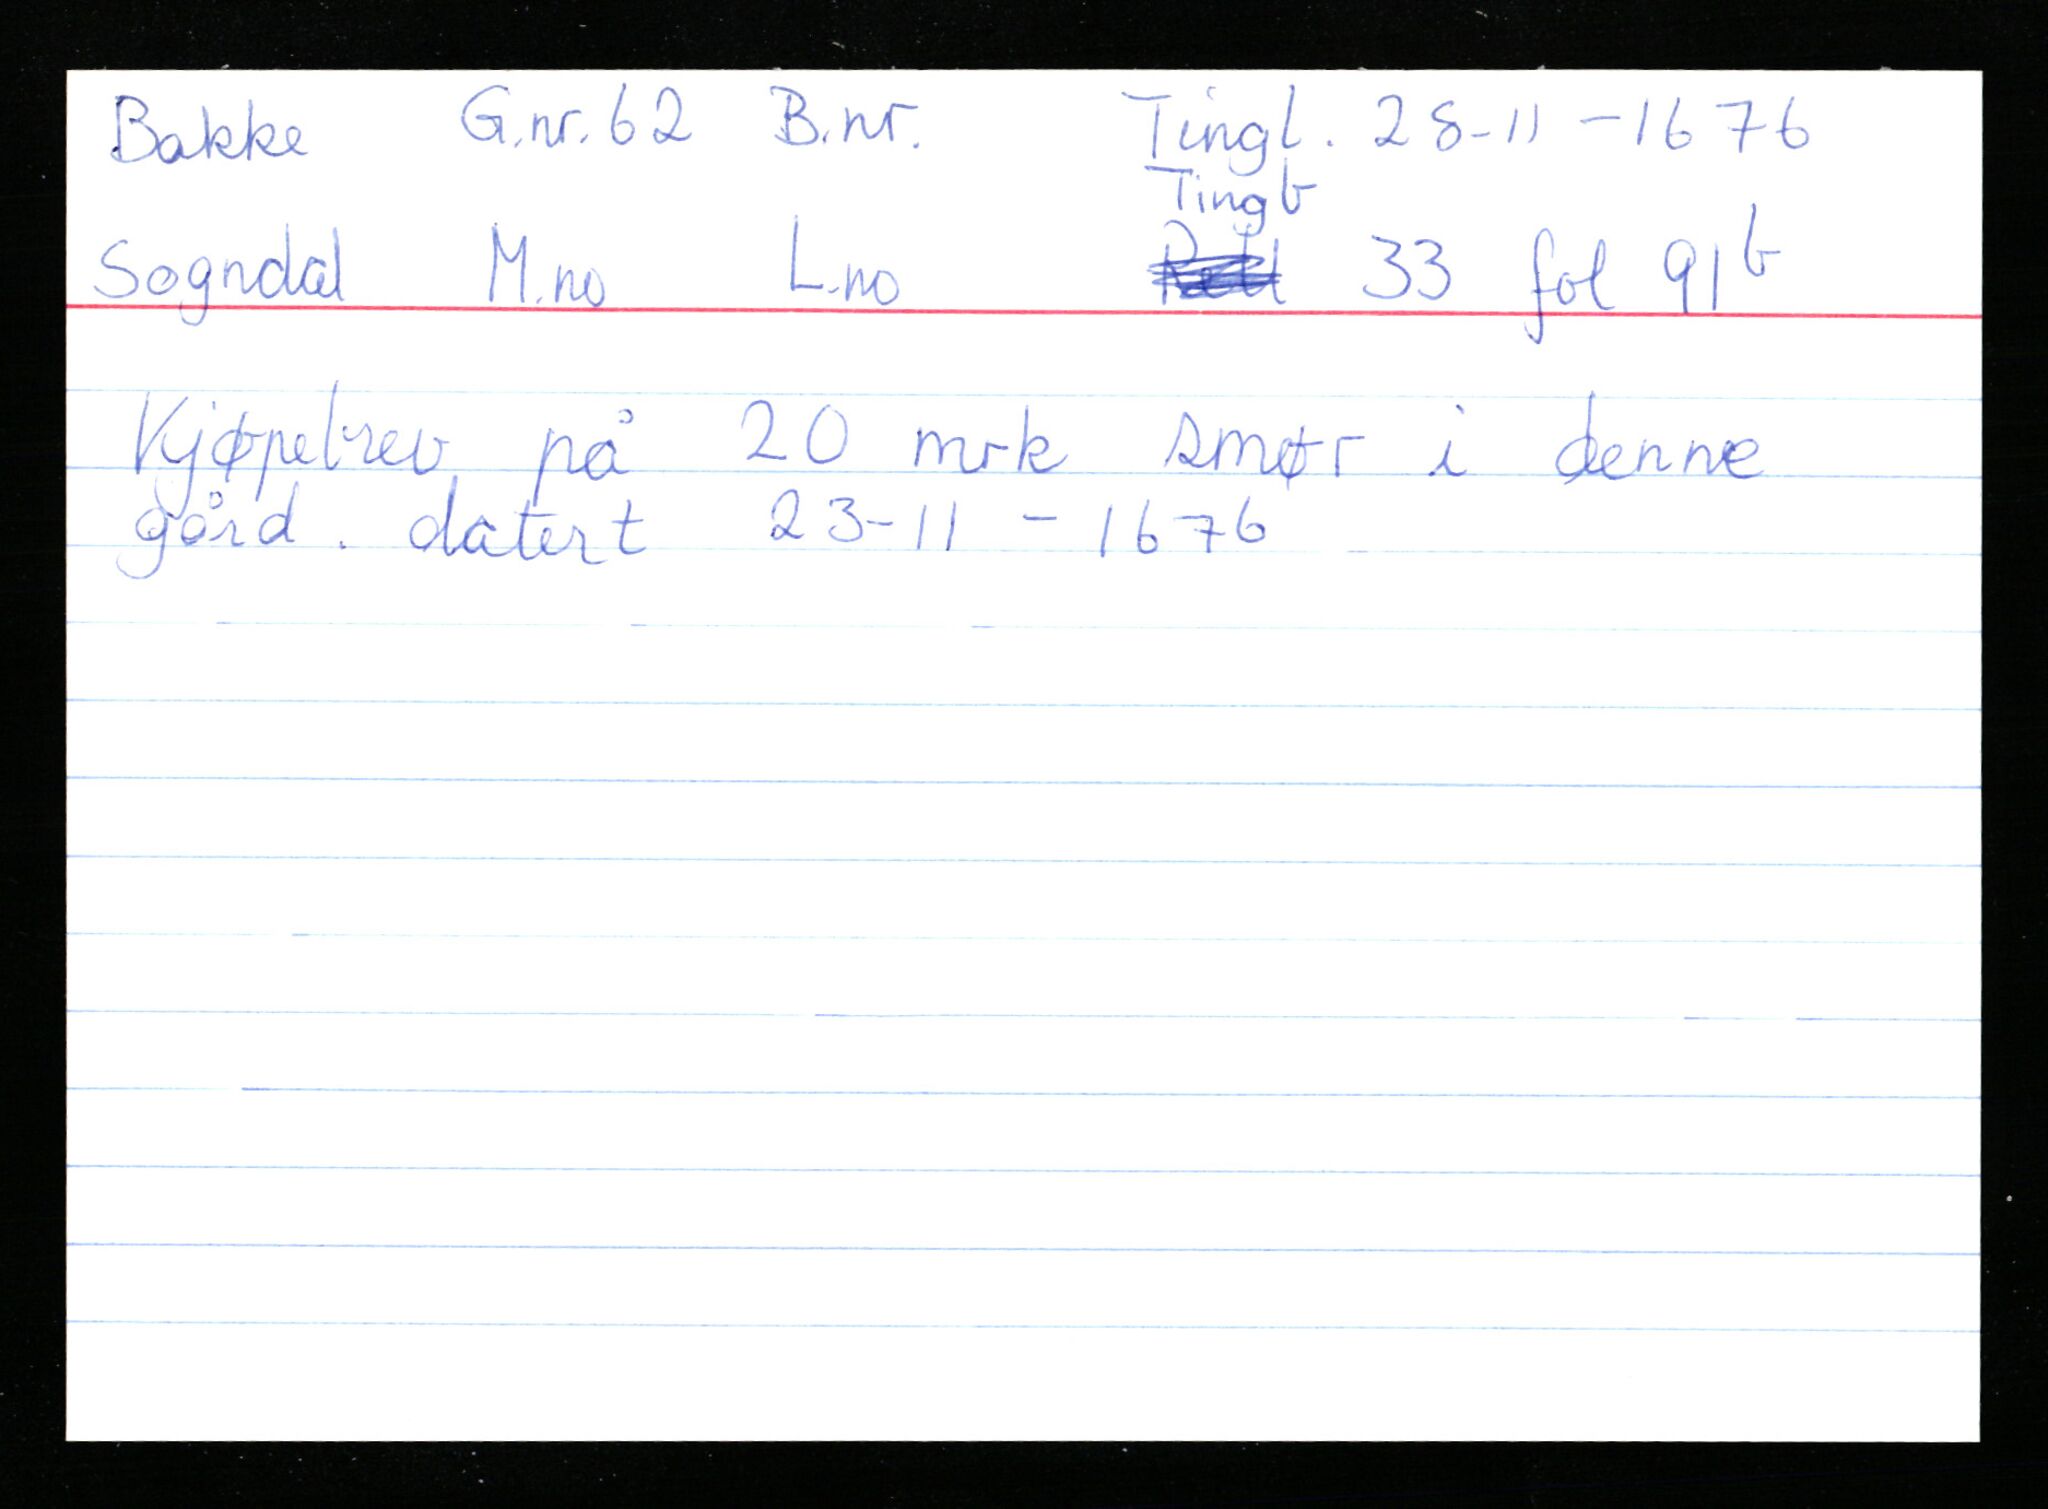 Bakke G.nr. 62 B.nr. Tingl. 28-11-1676
Tingb
Sogndal M.no L.no 33 fol 91b
Kjøpebrev på 20 mrk smør i denne
gård. datert 23-11-1676